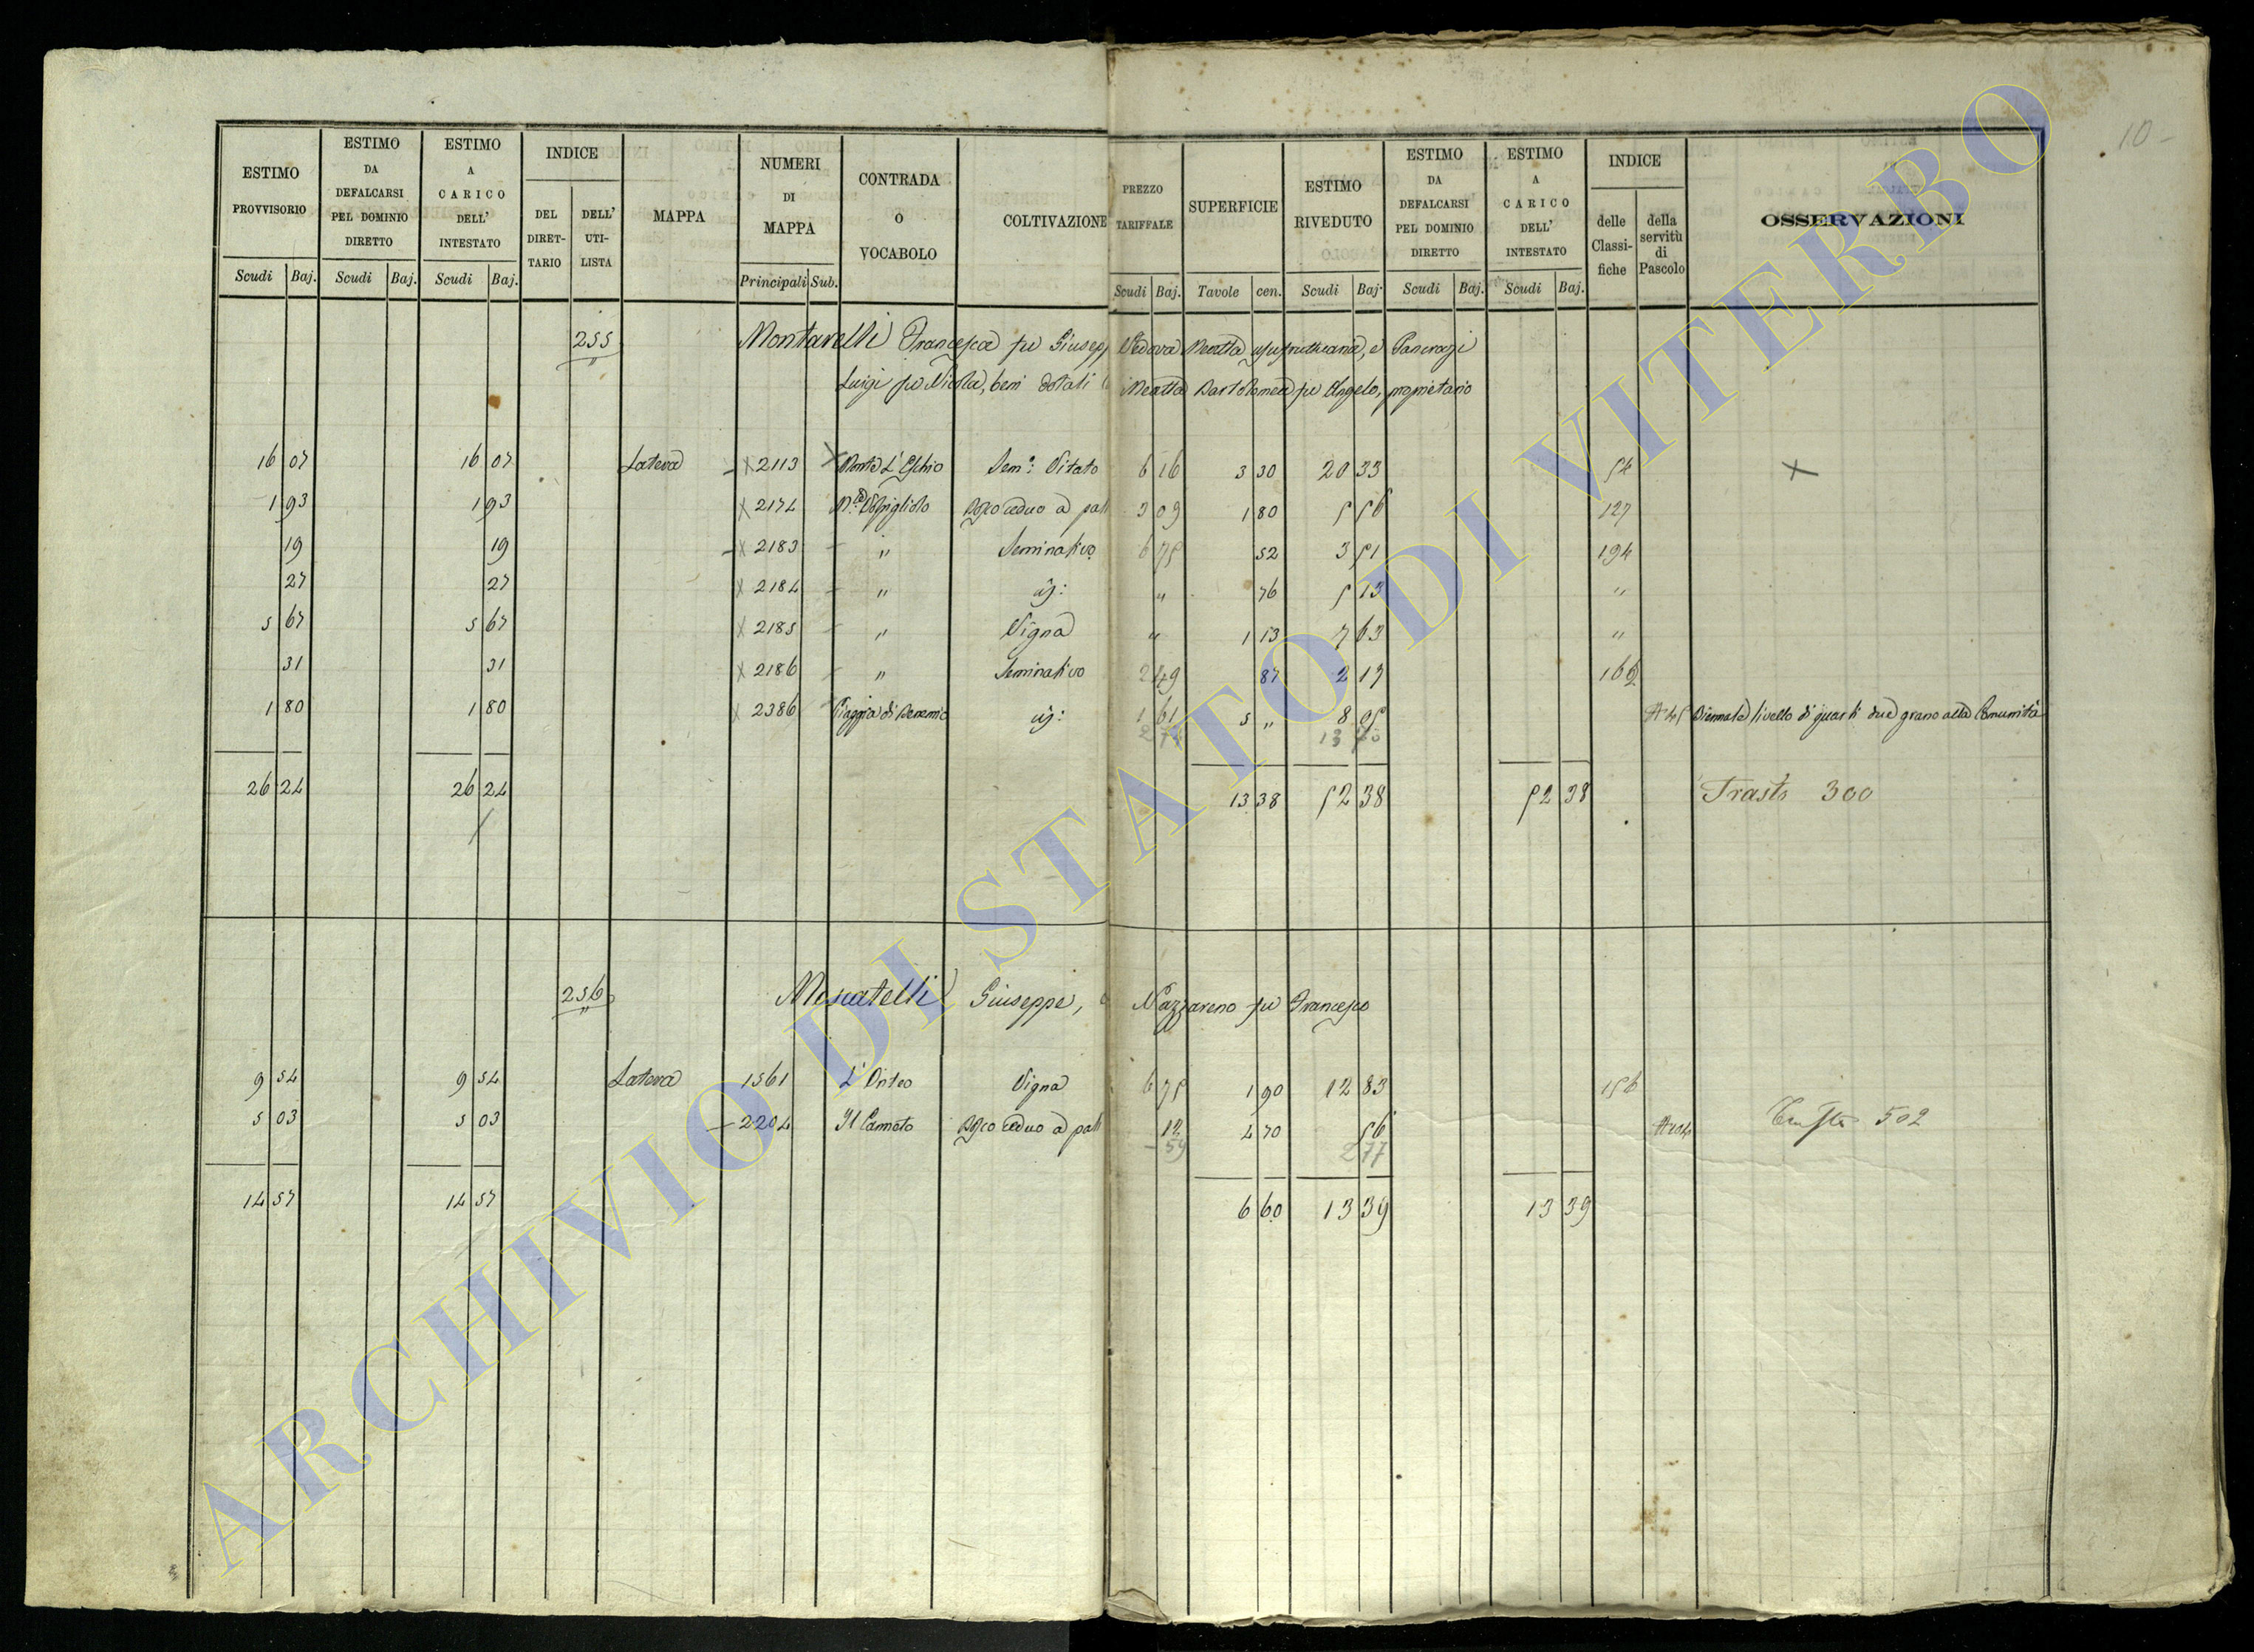 10-
ESTIMO PROVVISORIO
ESTIMO DA DEFALCARSI PEL DOMINIO DIRETTO
ESTIMO A CARICO DELL' INTESTATO
INDICE
DEL DIRETTARIO
DELL' UTILISTA
MAPPA
NUMERI DI MAPPA
CONTRADA O VOCABOLO
COLTIVAZIONE
PREZZO TARIFFALE
SUPERFICIE
ESTIMO RIVEDUTO
ESTIMO DA DEFALCARSI PEL DOMINIO DIRETTO
ESTIMO A CARICO DELL' INTESTATO
INDICE
delle Classifiche
della servitù di Pascolo
OSSERVAZIONI
Scudi Baj. Scudi Baj. Scudi Baj. Principali Sub. Scudi Baj. Tavole cen. Scudi Baj. Scudi Baj. Scudi Baj.
255 Montarelli Francesca fu Giusepp Vedova usufruttuaria, e Pancrazi
Luigi fu Nicola, beni dotali Bartolomea fu Angelo, proprietario
16 07 16 07 Latera 2113 Monte L'Eschio Sem.o Vitato 6 16 3 30 20 33 54
1 93 1 93 2174 Bosco ceduo a pali 3 09 1 80 5 56 127
19 19 2183 " Seminativo 6 75 52 3 51 194
27 27 2184 " id: " 76 5 13 "
5 67 5 67 2185 " Vigna " 1 13 7 63 "
31 31 2186 " Seminativo 2 49 87 2 17 166
1 80 1 80 2386 Piaggia di id: 1 61 5 " 8 05 Biennale livello di quarti due grano alla Comunità
2 74 13 70
26 24 26 24 13 38 52 38 52 38 Trasto 300
256 Moscatelli Giuseppe, e Nazzareno fu Francesco
9 54 9 54 Latera 1561 L'Onteo Vigna 6 75 1 90 12 83 156
5 03 5 03 2204 Il Canneto Bosco ceduo a pali 12 4 70 56 502
59 2 77
14 57 14 57 6 60 13 39 13 39
ARCHIVIO DI STATO DI VITERBO